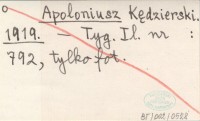 Apoloniusz Kędzierski.
1919. – Tyg. Il. nr :
792, tylko fot.